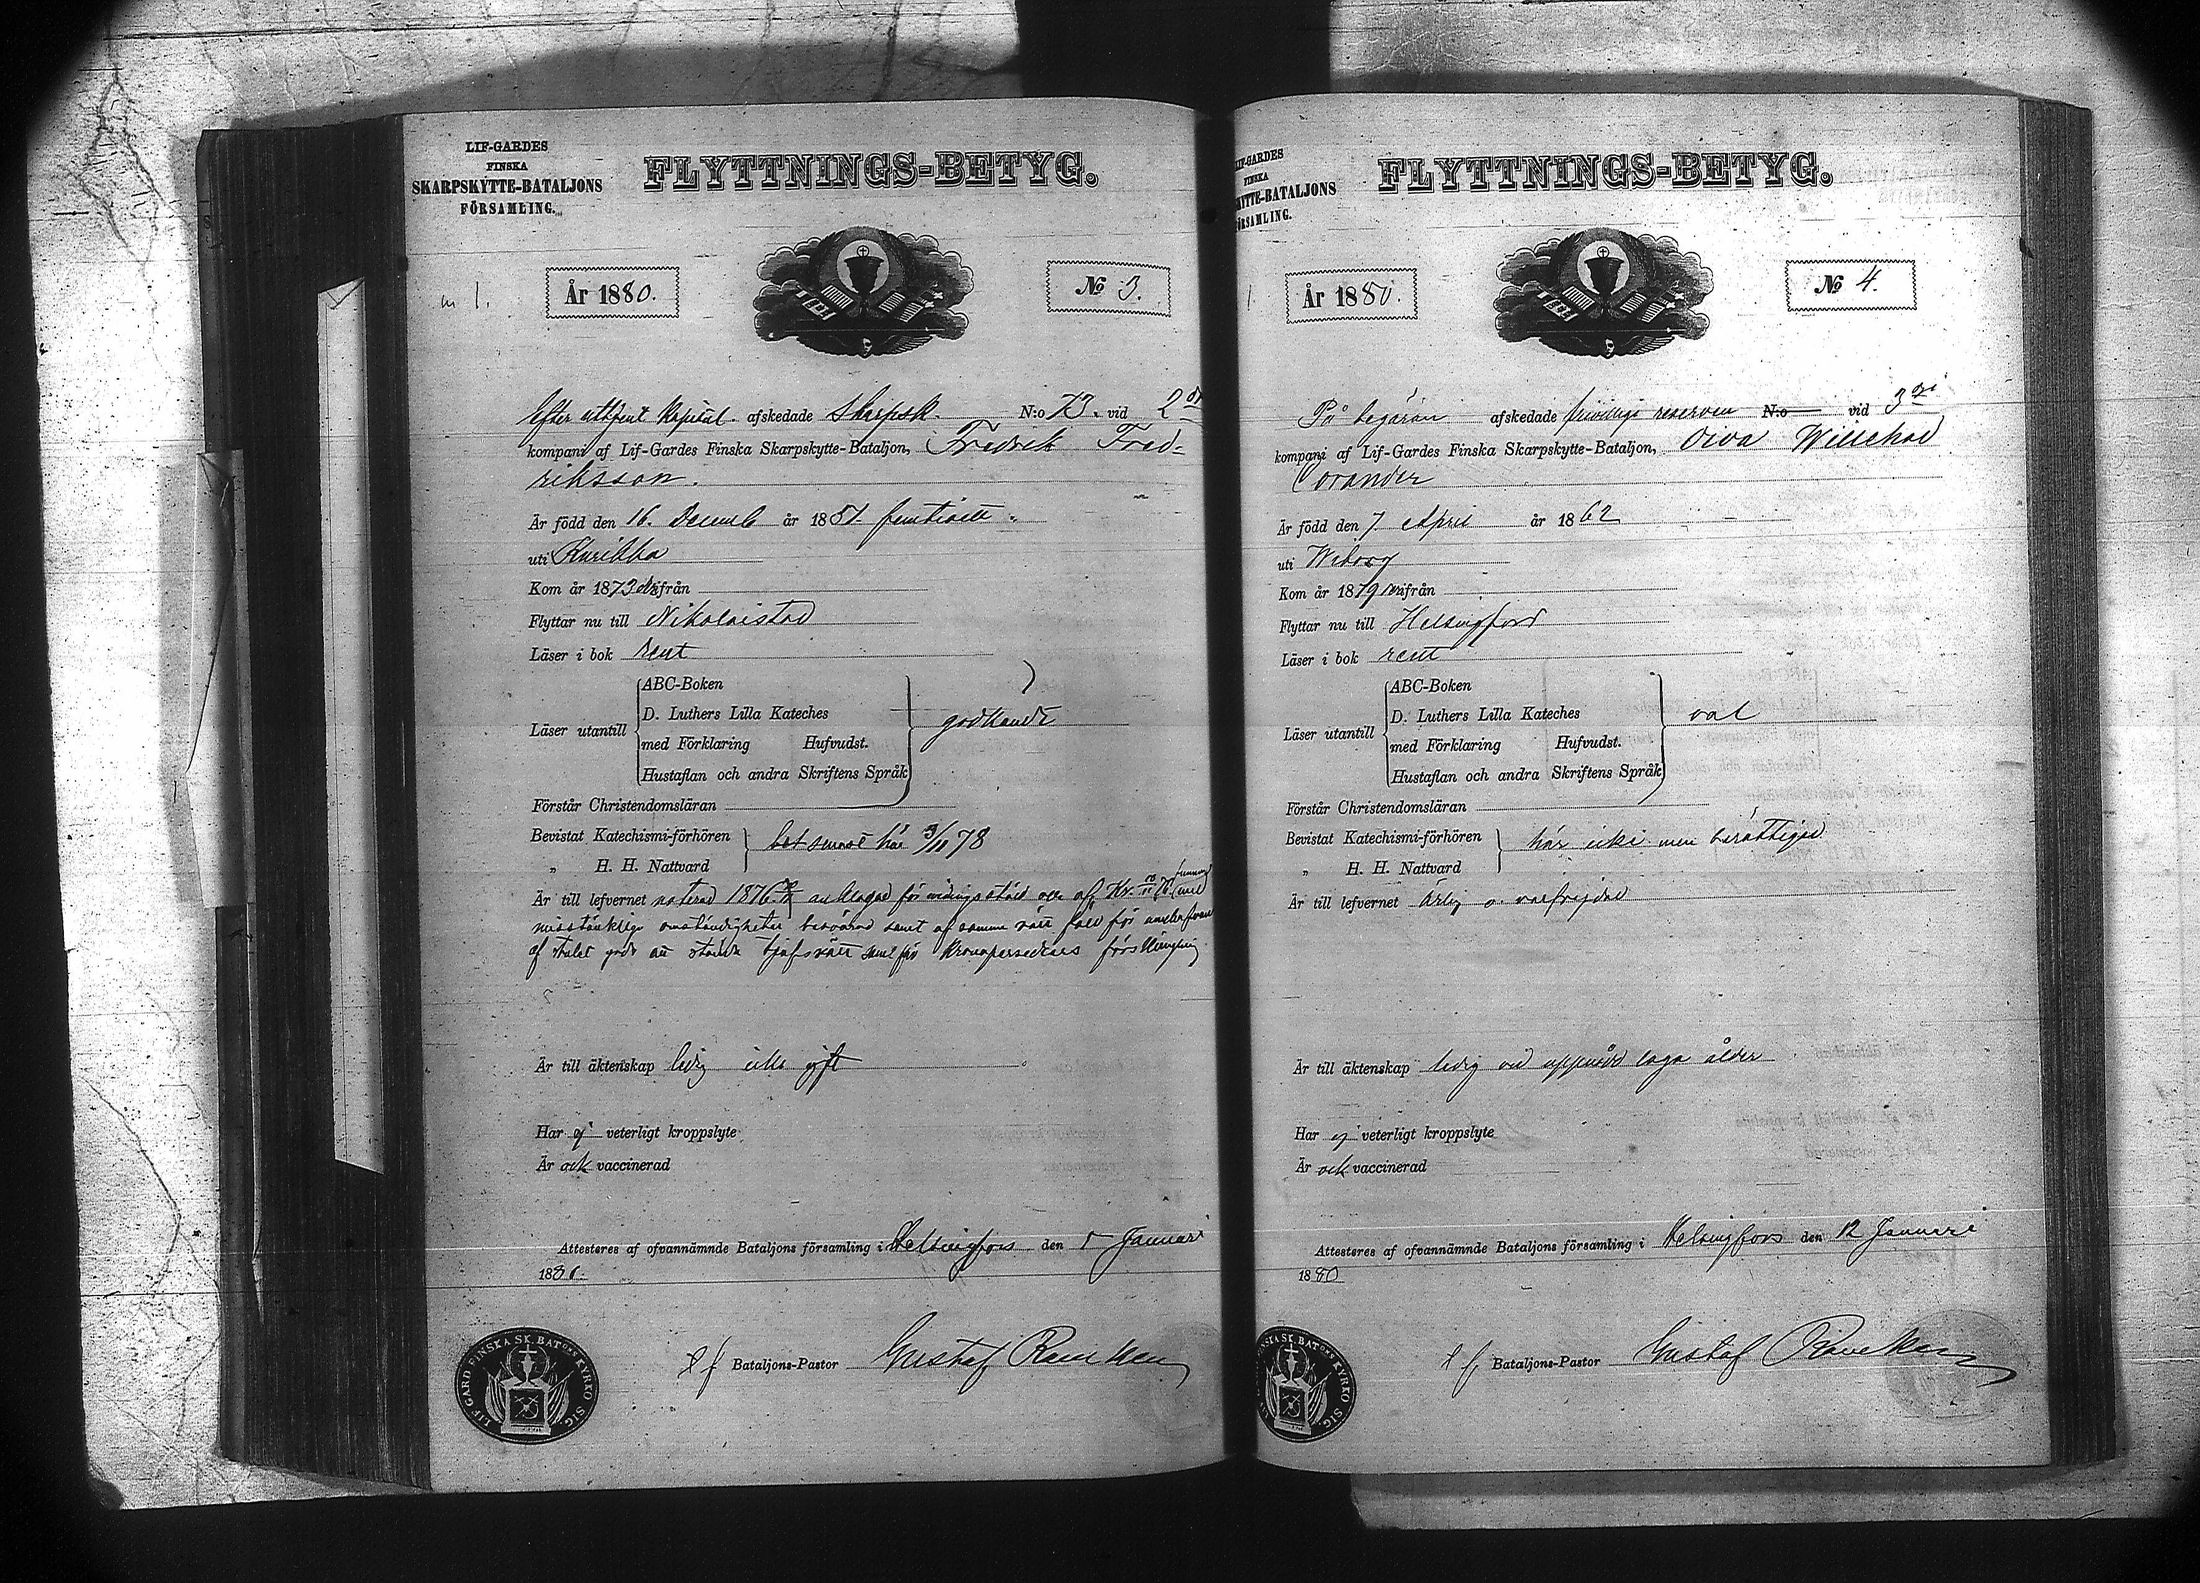 LIF-GARDES
FINSKA
SKARPSKYTTE-BATALJONS
FÖRSAMLING.
FLYTTNINGS-BETYG.
År 1880.
№ 3.
Efter uttjent Kapitul. afskedade Skarpsk. N:o 73. vid 2
kompani af Lif-Gardes Finska Skarpskytte-Bataljon, Fredrik Fred-
riksson.
Är född den 16. Decemb år 1851. femtioett.
uti Kurikka
Kom år 1873 ifrån
Flyttar nu till Nikolaistad
Läser i bok rent
Läser utantill
ABC-Boken
D. Luthers Lilla Kateches
med Förklaring Hufvudst.
Hustaflan och andra Skriftens Språk
godkändt
Förstår Christendomsläran
Bevistat Katechismi-förhören
„ H. H. Nattvard
det senare här 3/11 78
Är till lefvernet noterad 1876 anklagad för af Kr.
misstänkliga omständigheter besvärad samt af samma rätt för
af stulet gods samt för Kronopersedlars förskingring
Är till äktenskap ledig icke gift
Har ej veterligt kroppslyte
Är ock vaccinerad
Attesteres af ofvannämnde Bataljons församling i Helsingfors den Januari
1880.
Bataljons-Pastor Gustaf
LIF GARD FINSKA SK. BATONS KYRKO SIG.
LIF-GARDES
FINSKA
SKYTTE-BATALJONS
FÖRSAMLING.
FLYTTNINGS-BETYG.
År 1880.
№ 4.
På begäran afskedade frivillige reserven N:o vid 3
kompani af Lif-Gardes Finska Skarpskytte-Bataljon, Oiva Willehad
Corander
Är född den 7 April år 1862
uti Wiborg
Kom år 1879 ifrån
Flyttar nu till Helsingfors
Läser i bok rent
Läser utantill
ABC-Boken
D. Luthers Lilla Kateches
med Förklaring Hufvudst.
Hustaflan och andra Skriftens Språk
val
Förstår Christendomsläran
Bevistat Katechismi-förhören
„ H. H. Nattvard
här icke men berättigad
Är till lefvernet ärlig o. välfrejdad
Är till äktenskap ledig vid uppnådd laga ålder
Har ej veterligt kroppslyte
Är ock vaccinerad
Attesteres af ofvannämnde Bataljons församling i Helsingfors den 12 Januari
1880
Bataljons-Pastor Gustaf
FINSKA SK. BATONS KYRKO SIG.